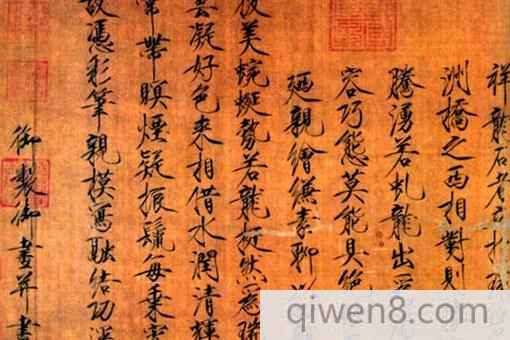 祥龍石者立於
洲橋之西相對則
騰湧若虬龍出為
容巧態莫能具絕
廼親繪縑素聊
彼美蜿蜒勢若龍挺然為瑞
雲凝好色來相借水潤清輝
常帶暝煙疑振鬣每乘宵
故憑彩筆親模寫融結功深
御製御畫并書
qiwen8.com